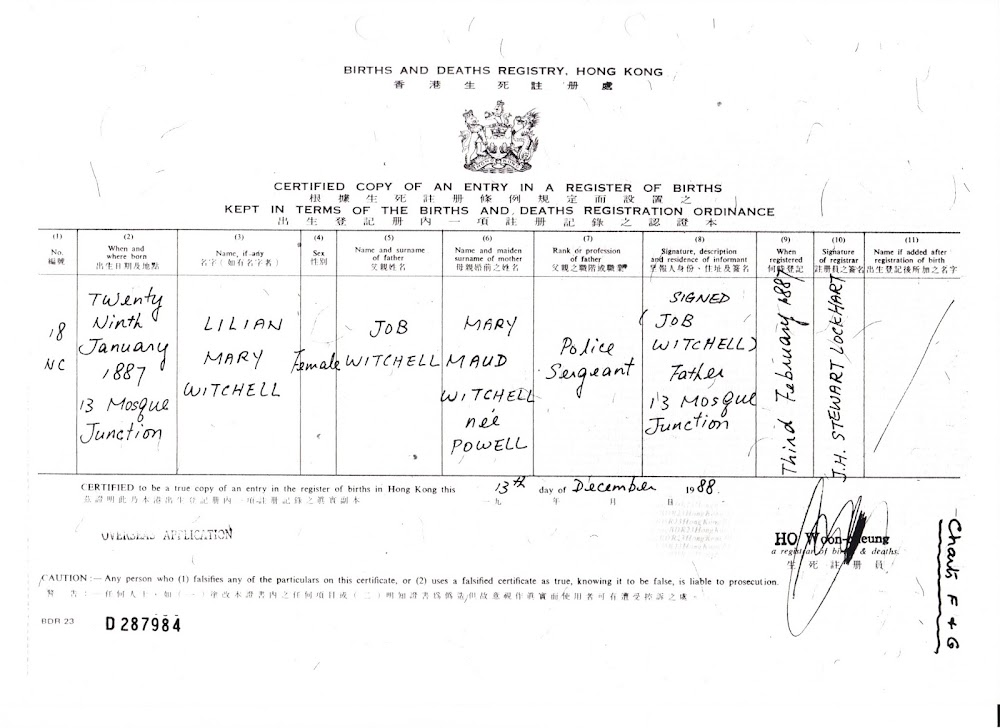 BIRTHS AND DEATHS REGISTRY, HONG KONG
香港生死註册處
CERTIFIED COPY OF AN ENTRY IN A REGISTER OF BIRTHS
根據生死註册條例規定而設置之
KEPT IN TERMS OF THE BIRTHS AND DEATHS REGISTRATION ORDINANCE
出生登記册內一項註册記錄之認證本
(1)
No.
編號
(2)
When and
where born
出生日期及地點
(3)
Name, if any
名字(如有名字者)
(4)
Sex
性別
(5)
Name and surname
of father
父親姓名
(6)
Name and maiden
surname of mother
母親婚前之姓名
(7)
Rank or profession
of father
父親之職階或職業
(8)
Signature, description
and residence of informant
報人身份、住址及簽名
(9)
When
registered
何時登記
(10)
Signature
of registrar
註册員之簽名
(11)
Name if added after
registration of birth
出生登記後所加之名字
18
NC
Twenty
Ninth
January
1887
13 Mosque
Junction
LILIAN
MARY
WITCHELL
Female
JOB
WITCHELL
MARY
MAUD
WITCHELL
née
POWELL
Police
Sergeant
SIGNED
(JOB
WITCHELL)
Father
13 Mosque
Junction
Third February 1887
J.H. STEWART LOCKHART
CERTIFIED to be a true copy of an entry in the register of births in Hong Kong this 13th day of December 1988.
茲證明此乃本港出生登記册內一項註册記錄之眞實副本 一九 年 月 日
OVERSEAS APPLICATION
HO Woon-cheung
a registrar of births & deaths.
生死註册員
CAUTION:— Any person who (1) falsifies any of the particulars on this certificate, or (2) uses a falsified certificate as true, knowing it to be false, is liable to prosecution.
警告:—任何人士,如(一)塗改本證書內之任何項目或(二)明知證書爲僞造但故意視作眞實而使用者可有遭受控訴之處。
BDR 23
D 287984
Charts F & G